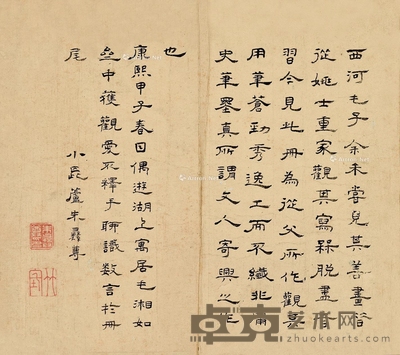 西河毛子余未嘗見其善畫
從姚士重家觀其寫槑脫盡
習今見此冊為從父所作觀其
用筆蒼勁秀逸工而不纖非
史筆墨真所謂文人寄興之作
也
康熙甲子春日偶遊湖上寓居毛湘如
中獲觀愛不釋手聊識數言於冊
尾
小長蘆朱彝尊